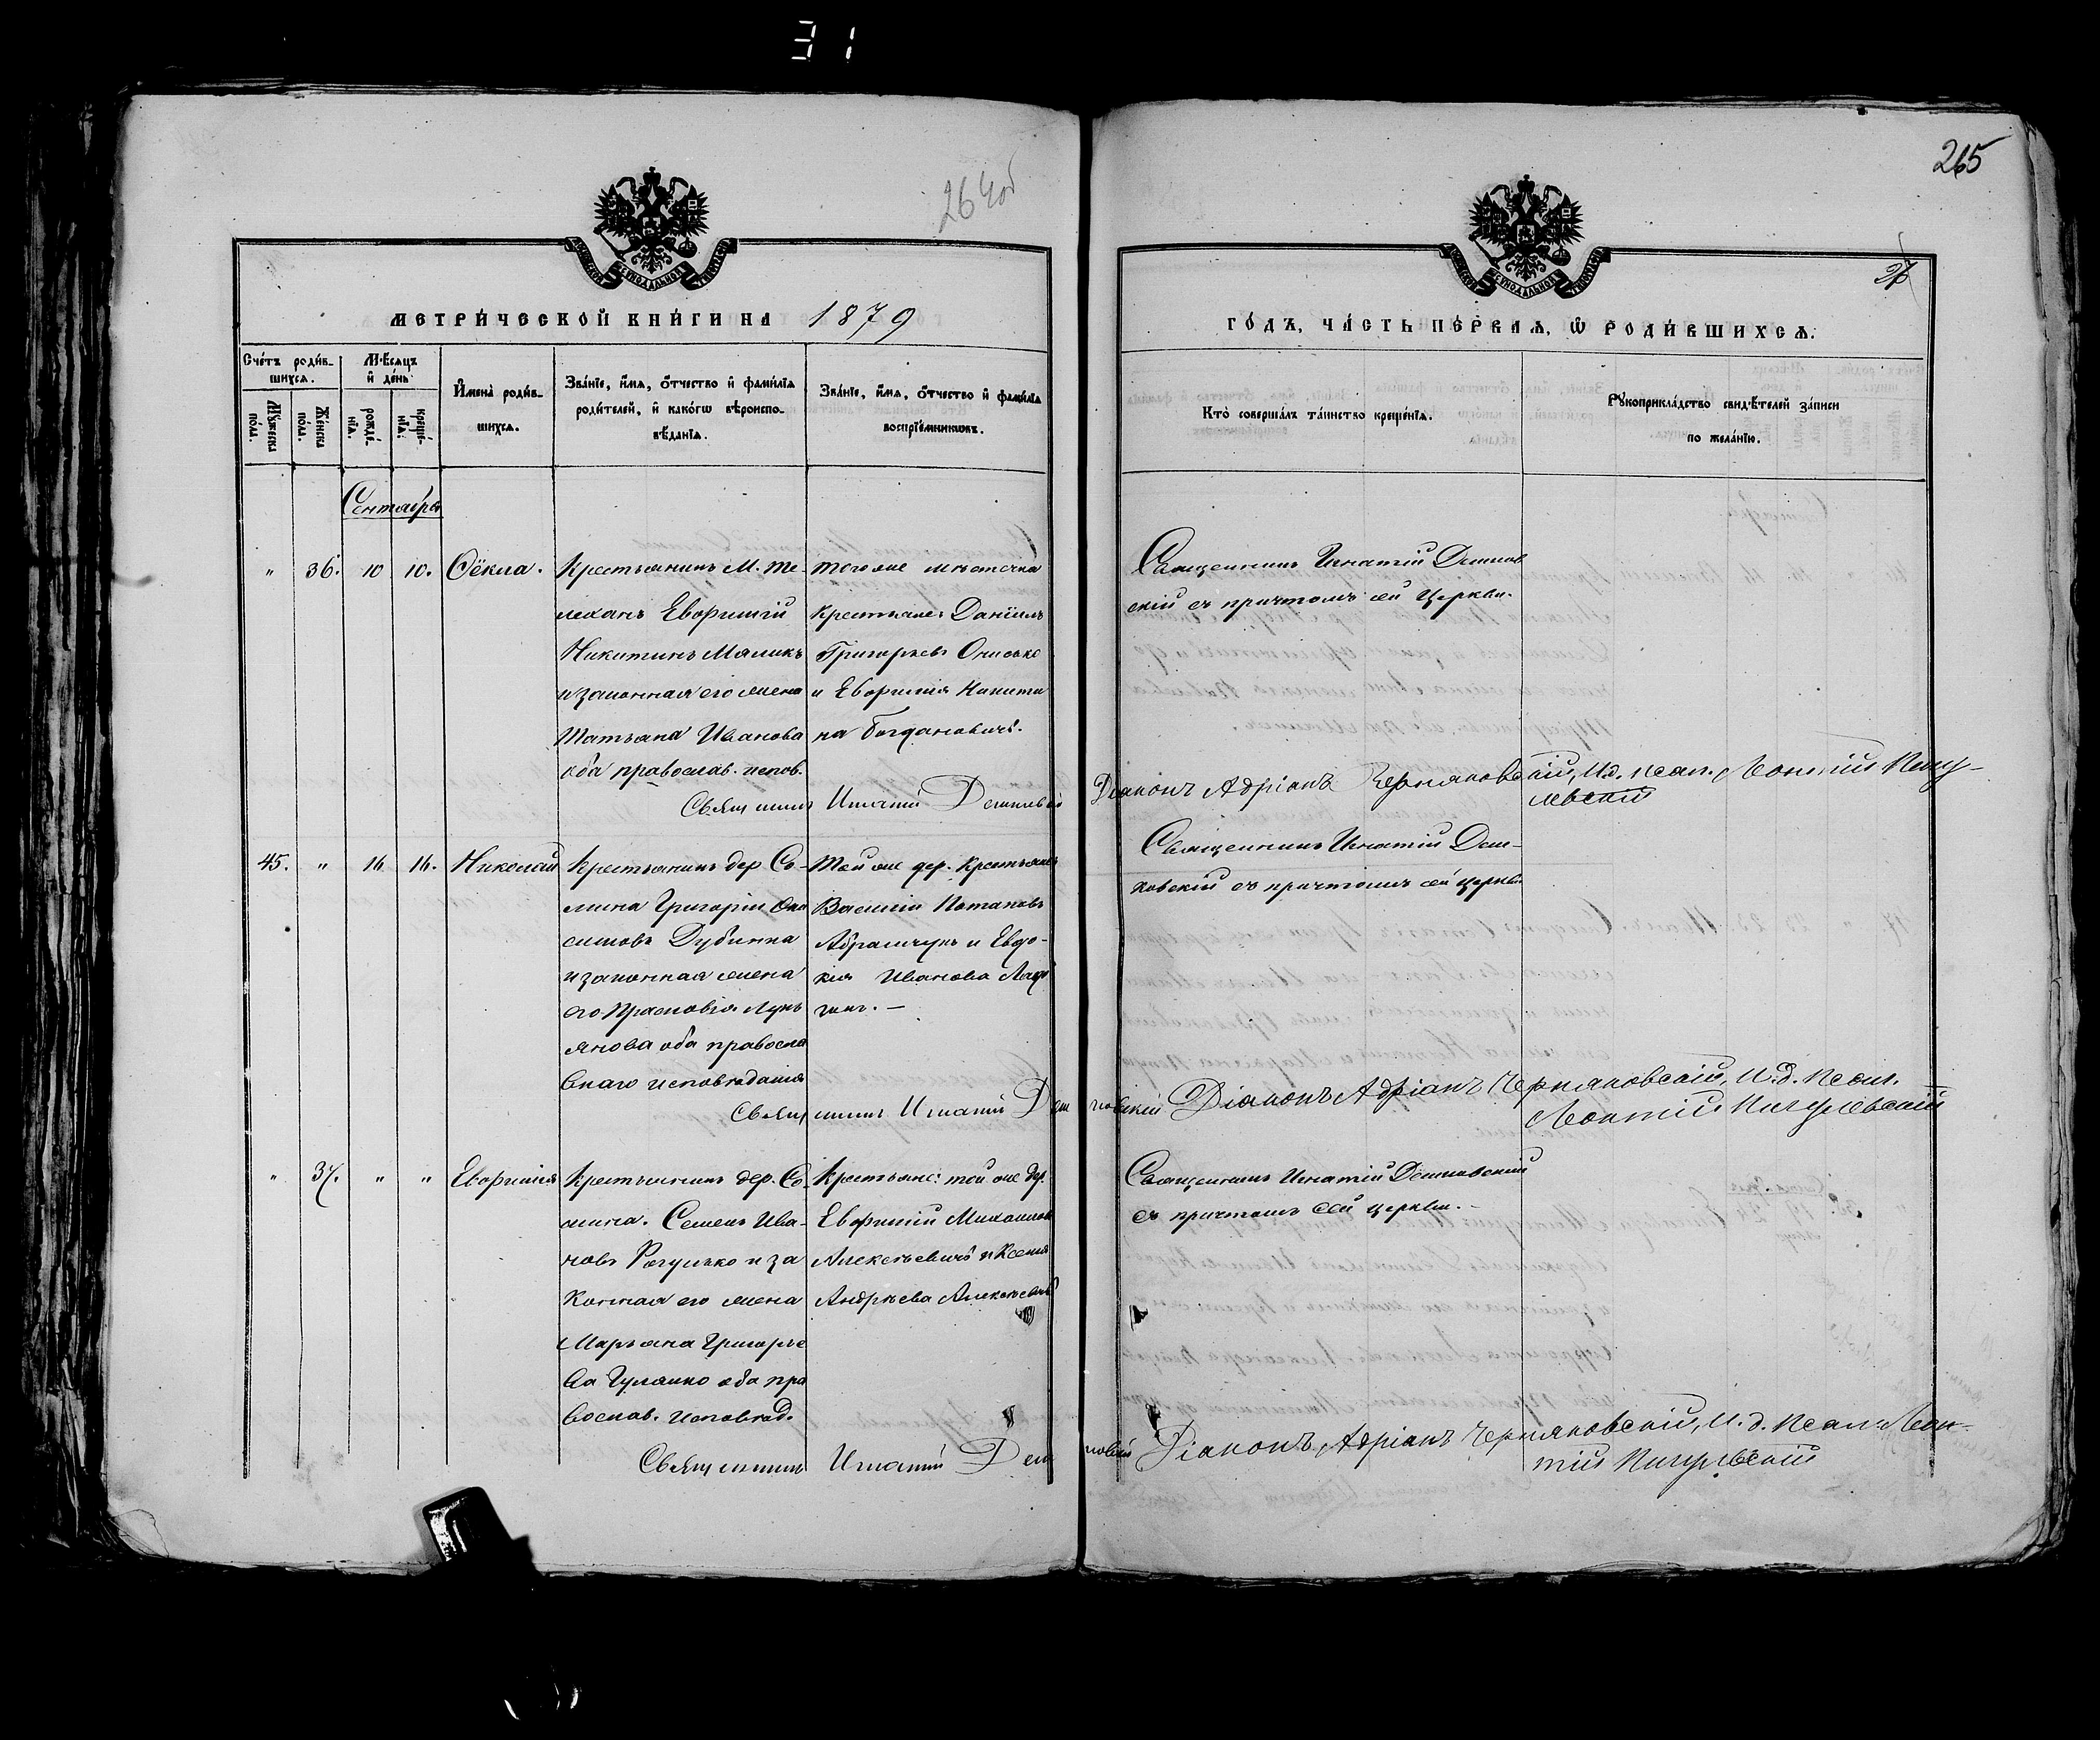 31
264об
265
27
МЕТРИ́ЧЕСКОЙ КНИ́ГИ НА 1879
ГО́ДЪ, ЧА́СТЬ ПЕ́РВАЯ, Ѡ РОДИ́ВШИХСЯ.
Сче́тъ роди́в-
шихся.
Мѣ́сяцъ
и де́нь
Имена̀ роди́в-
шихся.
Зва́нїе, и́мя, о́тчество и фами́лїя
роди́телей, и како́гѡ вѣроиспо-
вѣ́данїя.
Зва́нїе, и́мя, о́тчество и фами́лїя
воспрїе́мникѡвъ.
Му́жеска
по́ла.
Же́нска
по́ла.
рожде́-
нїя.
креще́-
нїя.
Кто̀ соверша́лъ та́инство креще́нїя.
Рꙋкоприкла́дство свидѣ́телей за́писи
по жела́нїю.
Сентябрь
" 36. 10 10. Ѳёкла.
Крестьянинъ М. Те-
леханъ Евфимій
Никитинъ Маликъ
и законная его жена
Татьяна Иванова
оба православ. испов.
того же мѣстечка
крестьяне: Даніилъ
Григорьевъ Онисько
и Евфимія Никити
на Богдановичъ.
Священникъ Игнатій Демков
скій съ причтомъ сей Церкви.
Священникъ Игнатій
Діаконъ Адріанъ Черняковскій, И.д. псал. Леонтій Пигу-
левскій
45. " 16 16. Николай
Крестьянинъ дер Со-
мина Григорій Они
симовъ Дубинка
и законная жена
его Прасковія Лукь
янова оба правосла
внаго исповѣданія
Той же дер. Крестьяне
Василій Потаповъ
Абрамчукъ и Евдо-
кія Иванова
Священникъ Игнатій Дем-
ковскій съ причтомъ сей церкви
Священникъ Игнатій Дем ковскій Діаконъ Адріанъ Черняковскій, И.д. Псал.
Леонтій Пигулевскій
" 37. " " Евфимія
Крестьянинъ дер. Со-
мина. Семенъ Ива-
новъ Рогулько и за
конная его жена
Марьяна Григорье
ва Гулянко оба пра
вослав. исповѣд.
Крестьяне: той же дер.
Евфимій Михаиловъ
Алексѣевичъ и Ксенія
Андрѣева Алексѣевичъ
Священникъ Игнатій Демковскій
съ причтомъ сей церкви.-
Священникъ Игнатій Дем ковскій Діаконъ Адріанъ Черняковскій, И.д. псал. Леон-
тій Пигулевскій